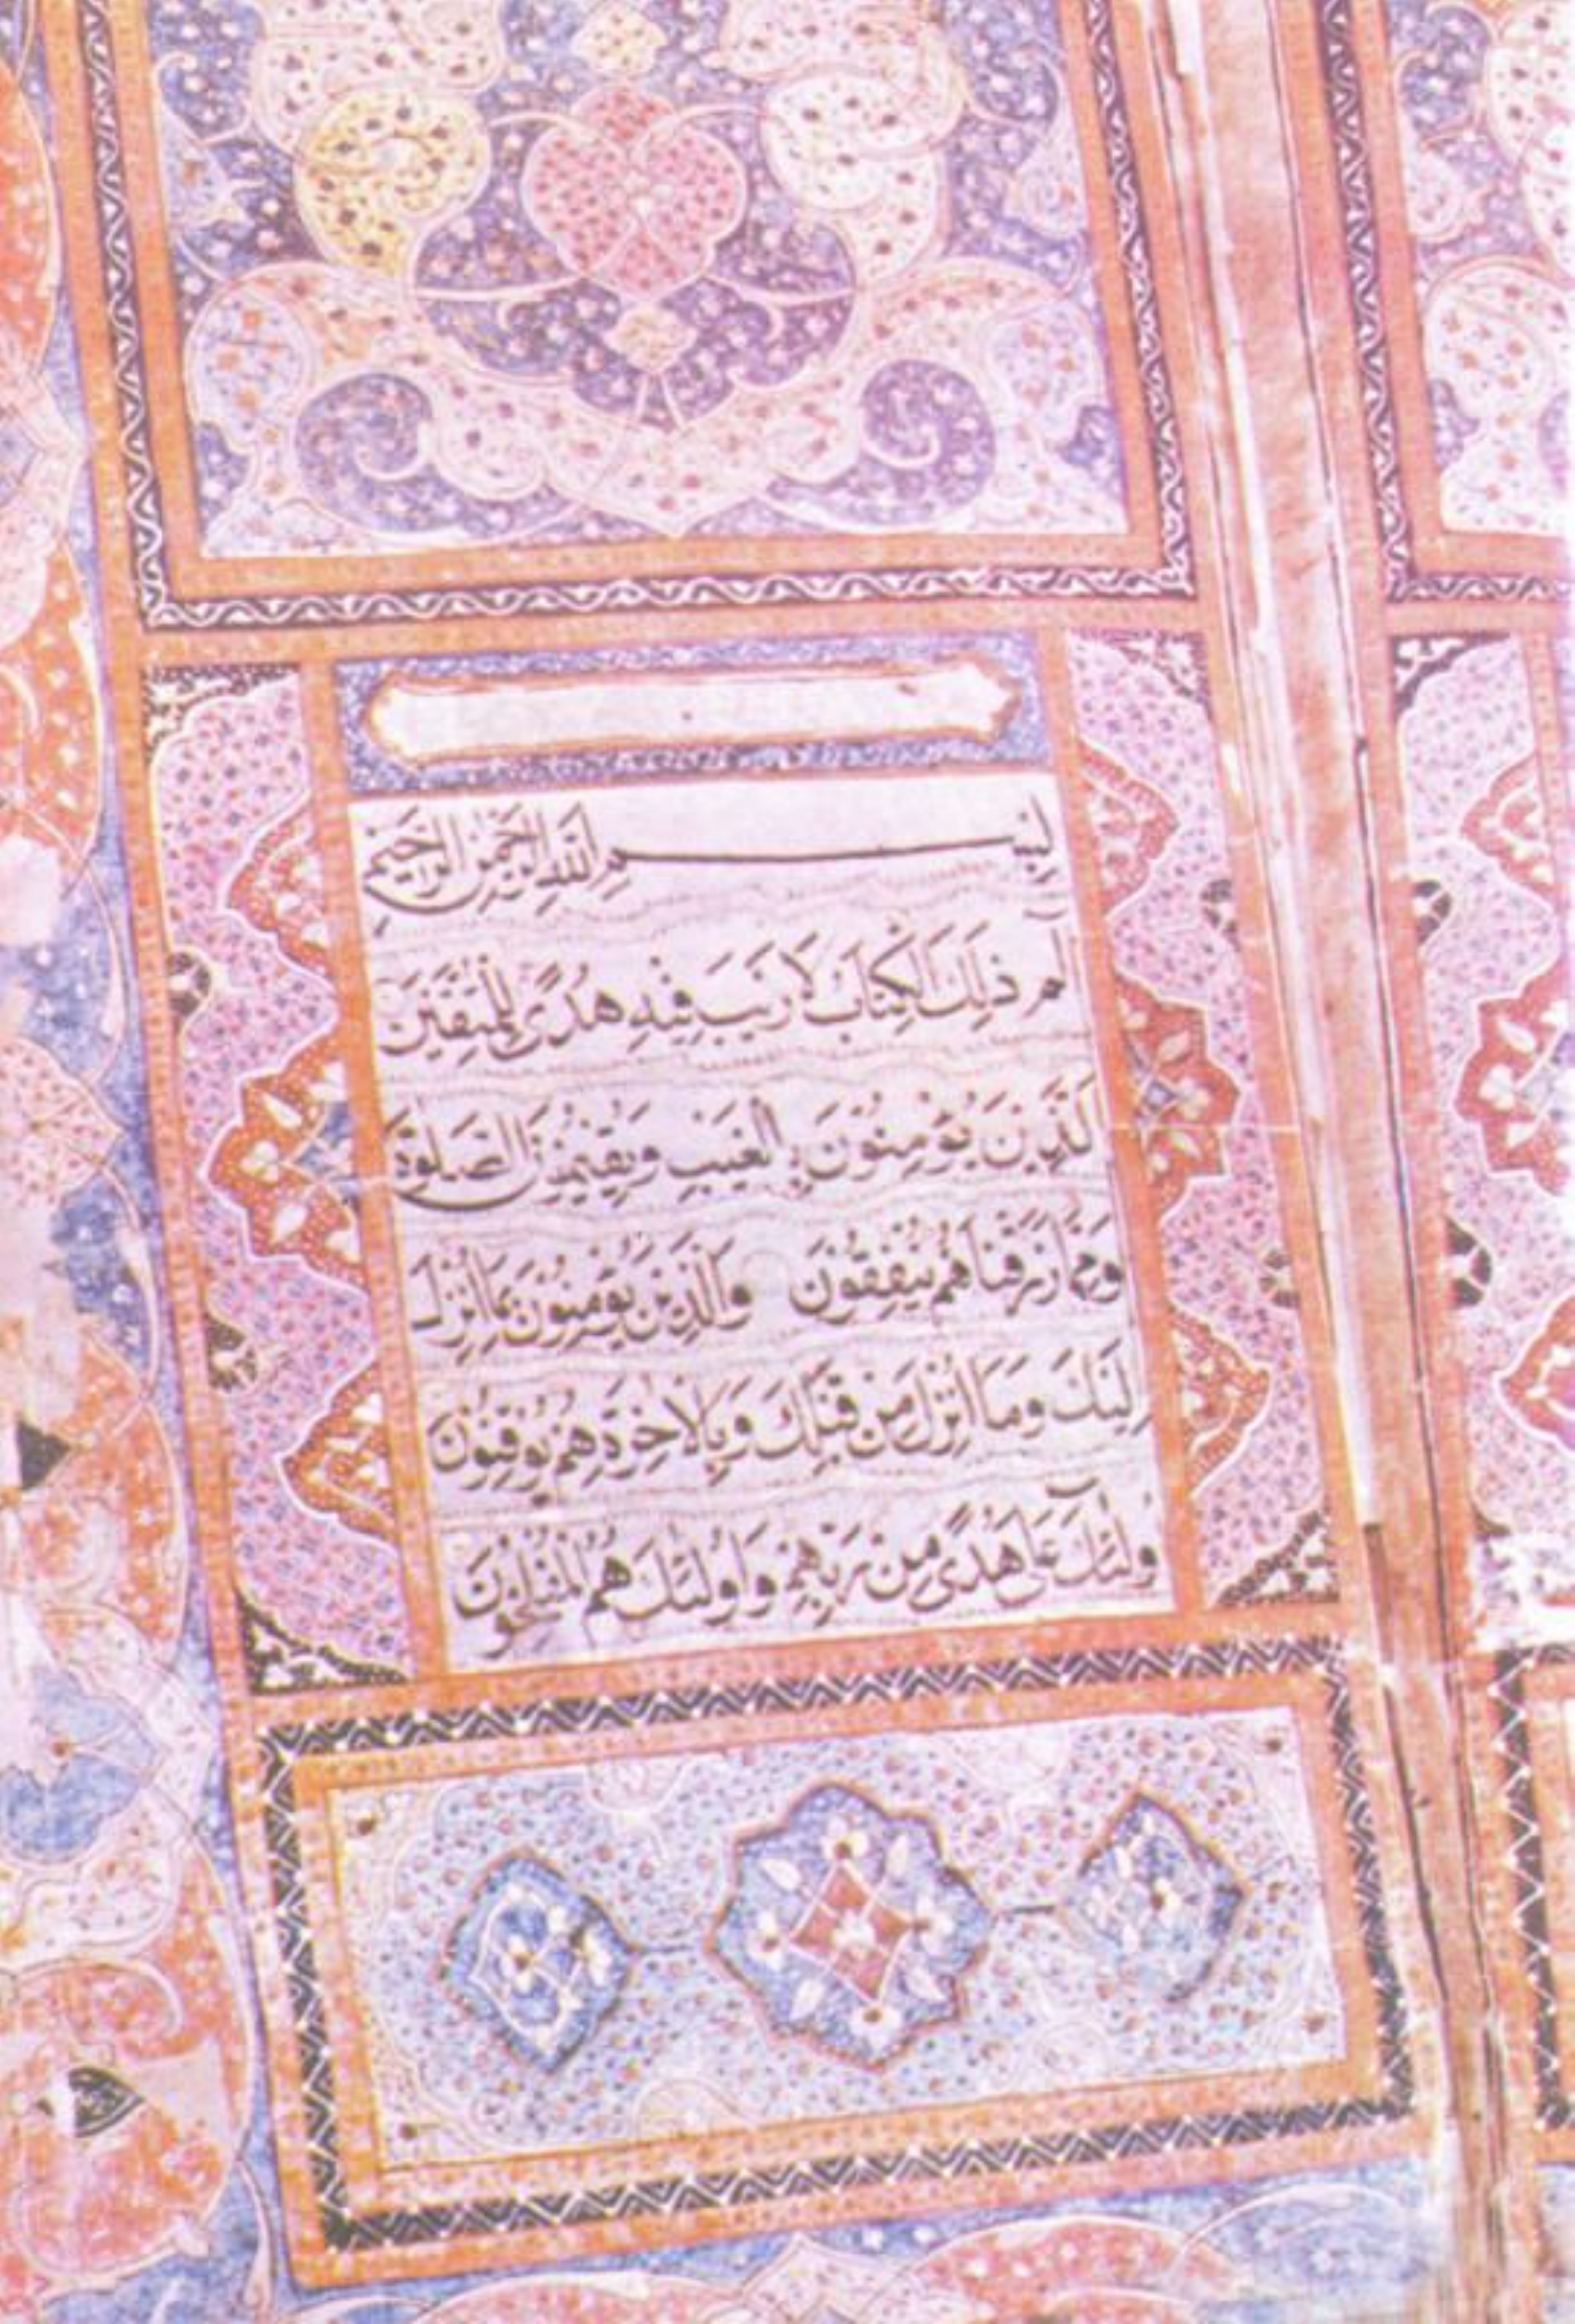 بِسْمِ اللهِ الرَّحْمٰنِ الرَّحِيْمِ
الٓمٓ ذٰلِكَ الْكِتَابُ لَا رَيْبَ فِيْهِ هُدًى لِلْمُتَّقِيْنَ
الَّذِيْنَ يُؤْمِنُوْنَ بِالْغَيْبِ وَيُقِيْمُوْنَ الصَّلٰوةَ
وَمِمَّا رَزَقْنَاهُمْ يُنْفِقُوْنَ وَالَّذِيْنَ يُؤْمِنُوْنَ بِمَا اُنْزِلَ
اِلَيْكَ وَمَا اُنْزِلَ مِنْ قَبْلِكَ وَبِالْاٰخِرَةِ هُمْ يُوْقِنُوْنَ
اُولٰٓئِكَ عَلٰى هُدًى مِنْ رَبِّهِمْ وَاُولٰٓئِكَ هُمُ الْمُفْلِحُوْنَ